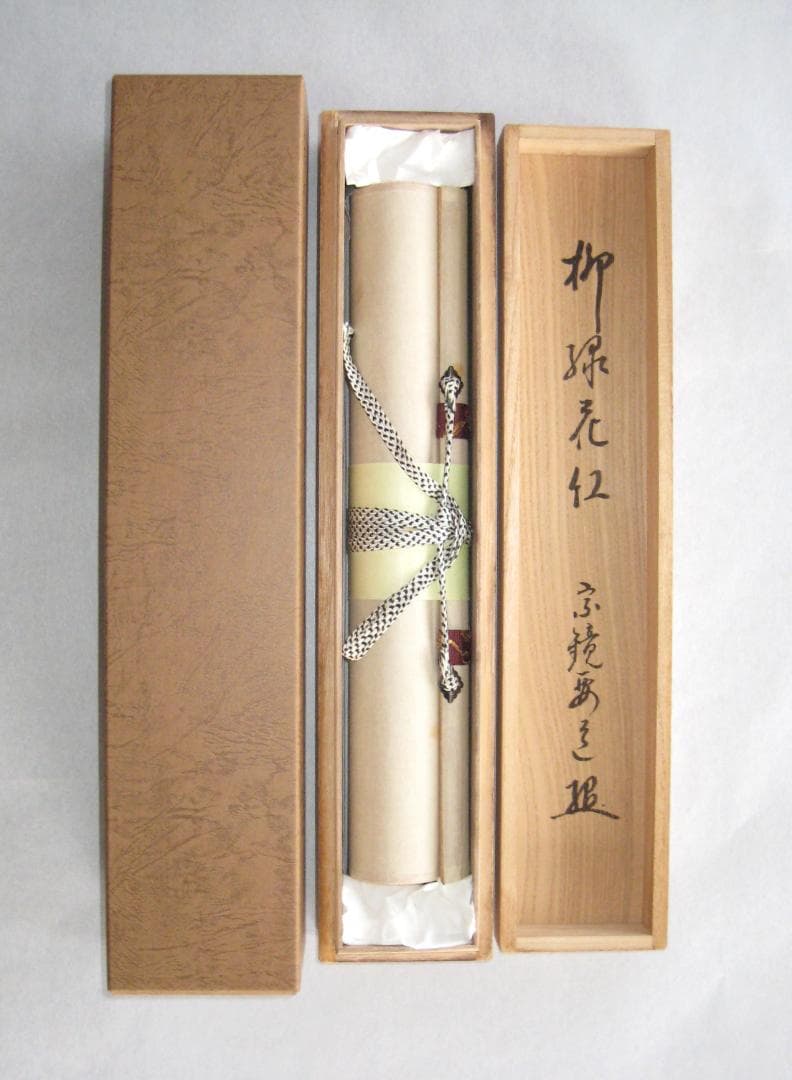 柳緑花紅
宗鏡要道題